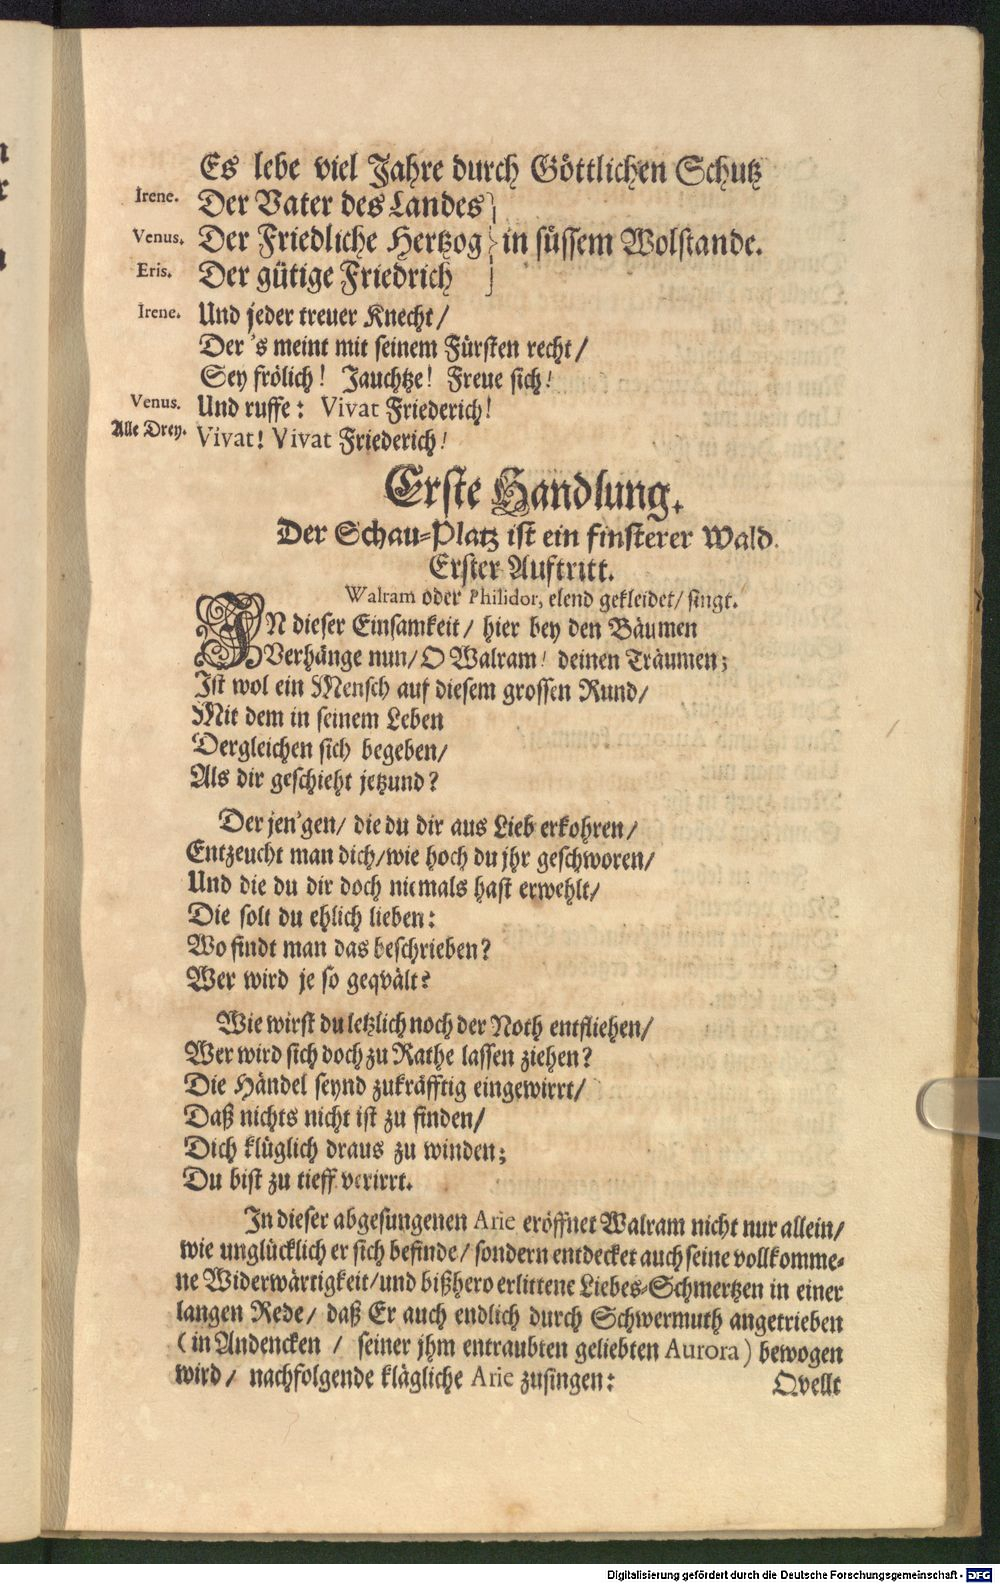 Es lebe viel Jahre durch Göttlichen Schutz
Irene. Der Vater des Landes
Venus. Der Friedliche Hertzog } in süssem Wolstande.
Eris. Der gütige Friedrich
Irene. Und jeder treuer Knecht/
Der's meint mit seinem Fürsten recht/
Sey frölich! Jauchtze! Freue sich!
Venus. Und ruffe: Vivat Friederich!
Alle Drey. Vivat! Vivat Friederich!
Erste Handlung.
Der Schau-Platz ist ein finsterer Wald.
Erster Auftritt.
Walram oder Philidor, elend gekleidet/ singt.
IN dieser Einsamkeit/ hier bey den Bäumen
Verhänge nun/ O Walram! deinen Träumen;
Ist wol ein Mensch auf diesem grossen Rund/
Mit dem in seinem Leben
Dergleichen sich begeben/
Als dir geschieht jetzund?
Der jen'gen/ die du dir aus Lieb erkohren/
Entzeucht man dich/ wie hoch du jhr geschworen/
Und die du dir doch niemals hast erwehlt/
Die solt du ehlich lieben:
Wo findt man das beschrieben?
Wer wird je so geqvält?
Wie wirst du letzlich noch der Noth entfliehen/
Wer wird sich doch zu Rathe lassen ziehen?
Die Händel seynd zukräfftig eingewirrt/
Daß nichts nicht ist zu finden/
Dich klüglich draus zu winden;
Du bist zu tieff verirrt.
In dieser abgesungenen Arie eröffnet Walram nicht nur allein/
wie unglücklich er sich befinde/ sondern entdecket auch seine vollkomme-
ne Widerwärtigkeit/ und bißhero erlittene Liebes-Schmertzen in einer
langen Rede/ daß Er auch endlich durch Schwermuth angetrieben
(in Andencken / seiner jhm entraubten geliebten Aurora) bewogen
wird/ nachfolgende klägliche Arie zusingen:
Qvellt
Digitalisierung gefördert durch die Deutsche Forschungsgemeinschaft - DFG